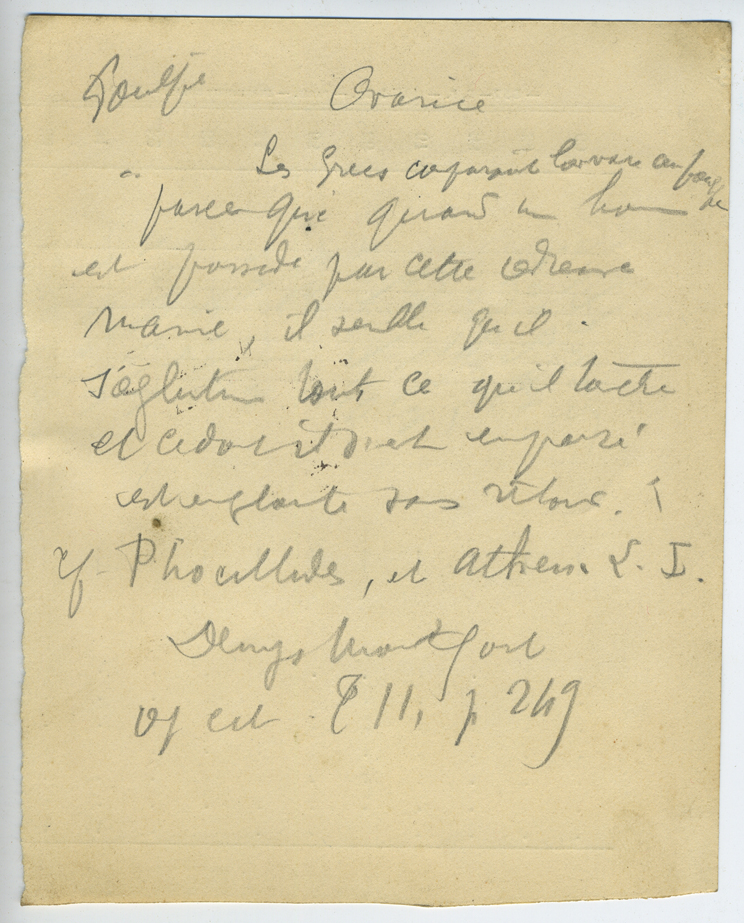 Poulpe Avarice
" Les Grecs comparent l'avare au poulpe
parce que quand un homme
est possédé par cette
manie, il semble qu'il
s'agglutine tout ce qu'il
et ce dont il s'est emparé
est englouti sans retour.
cf. Phocyllides, et Athen. L. I.
Denys Montfort
op cit T II, p 249